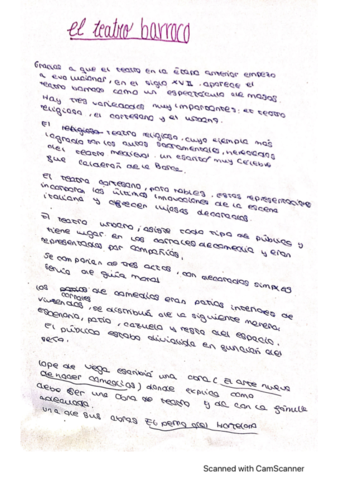 el teatro barroco
Gracias a que el teatro en la etapa anterior empezo
a evolucionar, en el siglo XVII aparece el
teatro barroco como un espectáculo de masas.
Hay tres variedades muy importantes: el teatro
religioso, el cortesano y el urbano.
El religioso teatro religioso, cuyo ejemplo más
logrado son los autos sacramentales, herederos
del teatro medieval. un escritor muy celebre
que Calderón de la Barca.
El teatro cortesano, para nobles, estas representaciones
incorpora los últimos innovaciones de la escena
italiana y ofrecen lujosos decorados
El teatro urbano, asiste todo tipo de público y
tiene lugar en los corrales de comedia y eran
representadas por compañías.
Se componían de tres actos, con decorados simples
Servía de guía moral
Los de comedias eran patios interiores de
corrales
viviendas, se distribuía de la siguiente manera:
escenario, patio, cazuela y resto del espacio.
El público estaba dividido en función del
sexo.
Lope de Vega escribió una obra (El arte nuevo
de hacer comedias) donde explica como
debe ser una obra de teatro y da con la fórmula
adecuada.
una de sus obras El perro del hortelano
Scanned with CamScanner